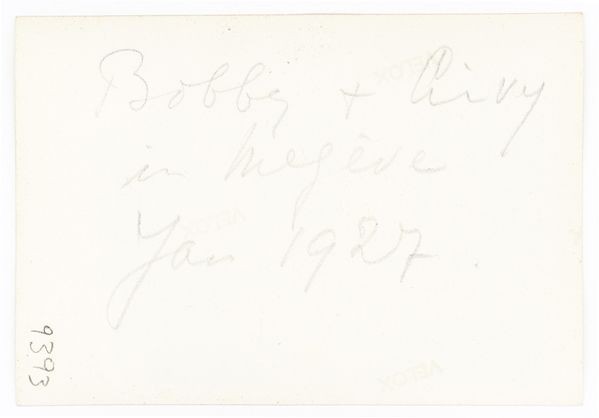 Bobby +
in Megève
Jan 1927.
9393
VELOX
VELOX
VELOX